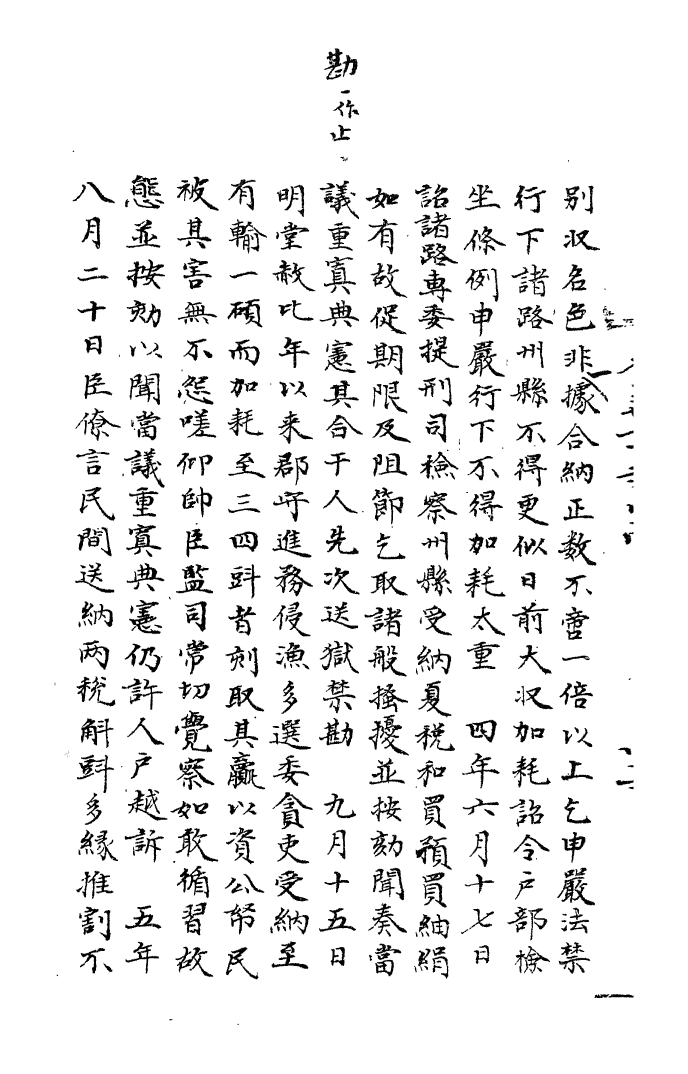 勘一作止
別收名色非據合納正数不啻一倍以上乞申嚴法禁
行下諸路州縣不得更似日前大収加耗詔令户部檢
坐條例申嚴行下不得加耗太重　四年六月十七日
詔諸路專委提刑司檢察州縣受納夏税和買預買紬絹
如有故促期限及阻節乞取諸般搔擾並按劾聞奏當
議重寘典憲其合干人先次送獄禁勘　九月十五日
明堂赦比年以来郡守進務侵漁多選委貪吏受納至
有輸一碩而加耗至三四㪷者刻取其贏以資公帑民
被其害無不怨嗟仰帥臣監司常切覺察如敢循習故
態並按劾以聞當議重寘典憲仍許人户越訴　五年
八月二十日臣僚言民間送納两稅斛㪷多緣推割不